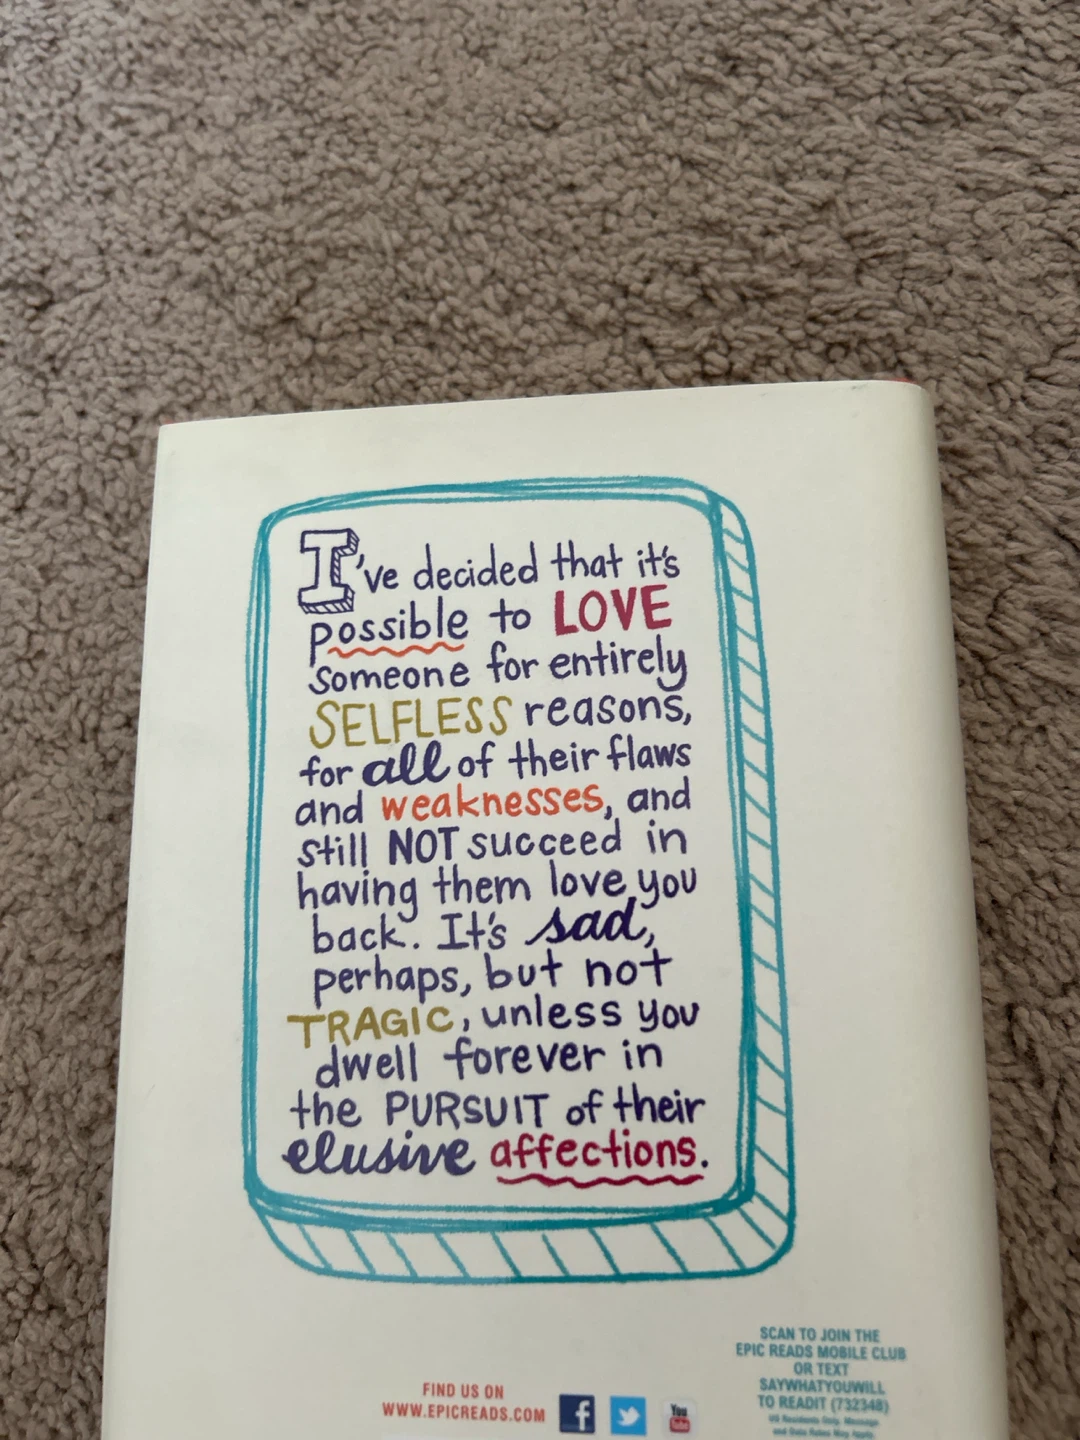 I've decided that it's
possible to LOVE
someone for entirely
SELFLESS reasons,
for all of their flaws
and weaknesses, and
still NOT succeed in
having them love you
back. It's sad,
perhaps, but not
TRAGIC, unless you
dwell forever in
the PURSUIT of their
elusive affections.
FIND US ON
WWW.EPICREADS.COM
f
You
Tube
SCAN TO JOIN THE
EPIC READS MOBILE CLUB
OR TEXT
SAYWHATYOUWILL
TO READIT (732348)
US Residents Only. Message
and Data Rates May Apply.